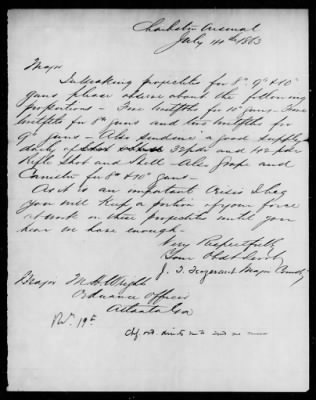 Charleston Arsenal
July 14th 1863
Major
In making projectiles for 8in 9in & 10in
guns please observe about the following
proportions - Five twelfths for 10in guns - Five
twelfths for 8in guns and two twelfths for
9in guns - Also send me a good supply
daily of 32 pdr and 42 pdr
Rifle Shot and Shell - Also Grape and
Canister for 8in & 10in Guns -
As it is an important Crisis I beg
you will keep a portion of your force
at work on these projectiles until you
hear we have enough -
Very Respectfully
Your Obdt Servt
J. T. Trezevant Major Comdg
Major M. H. Wright
Ordnance Officer
Atlanta Ga